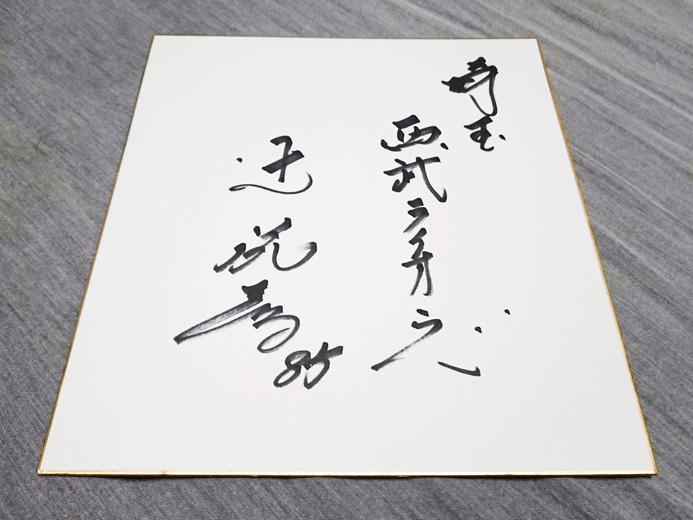 埼玉
西武ライオンズ
辻発彦
85